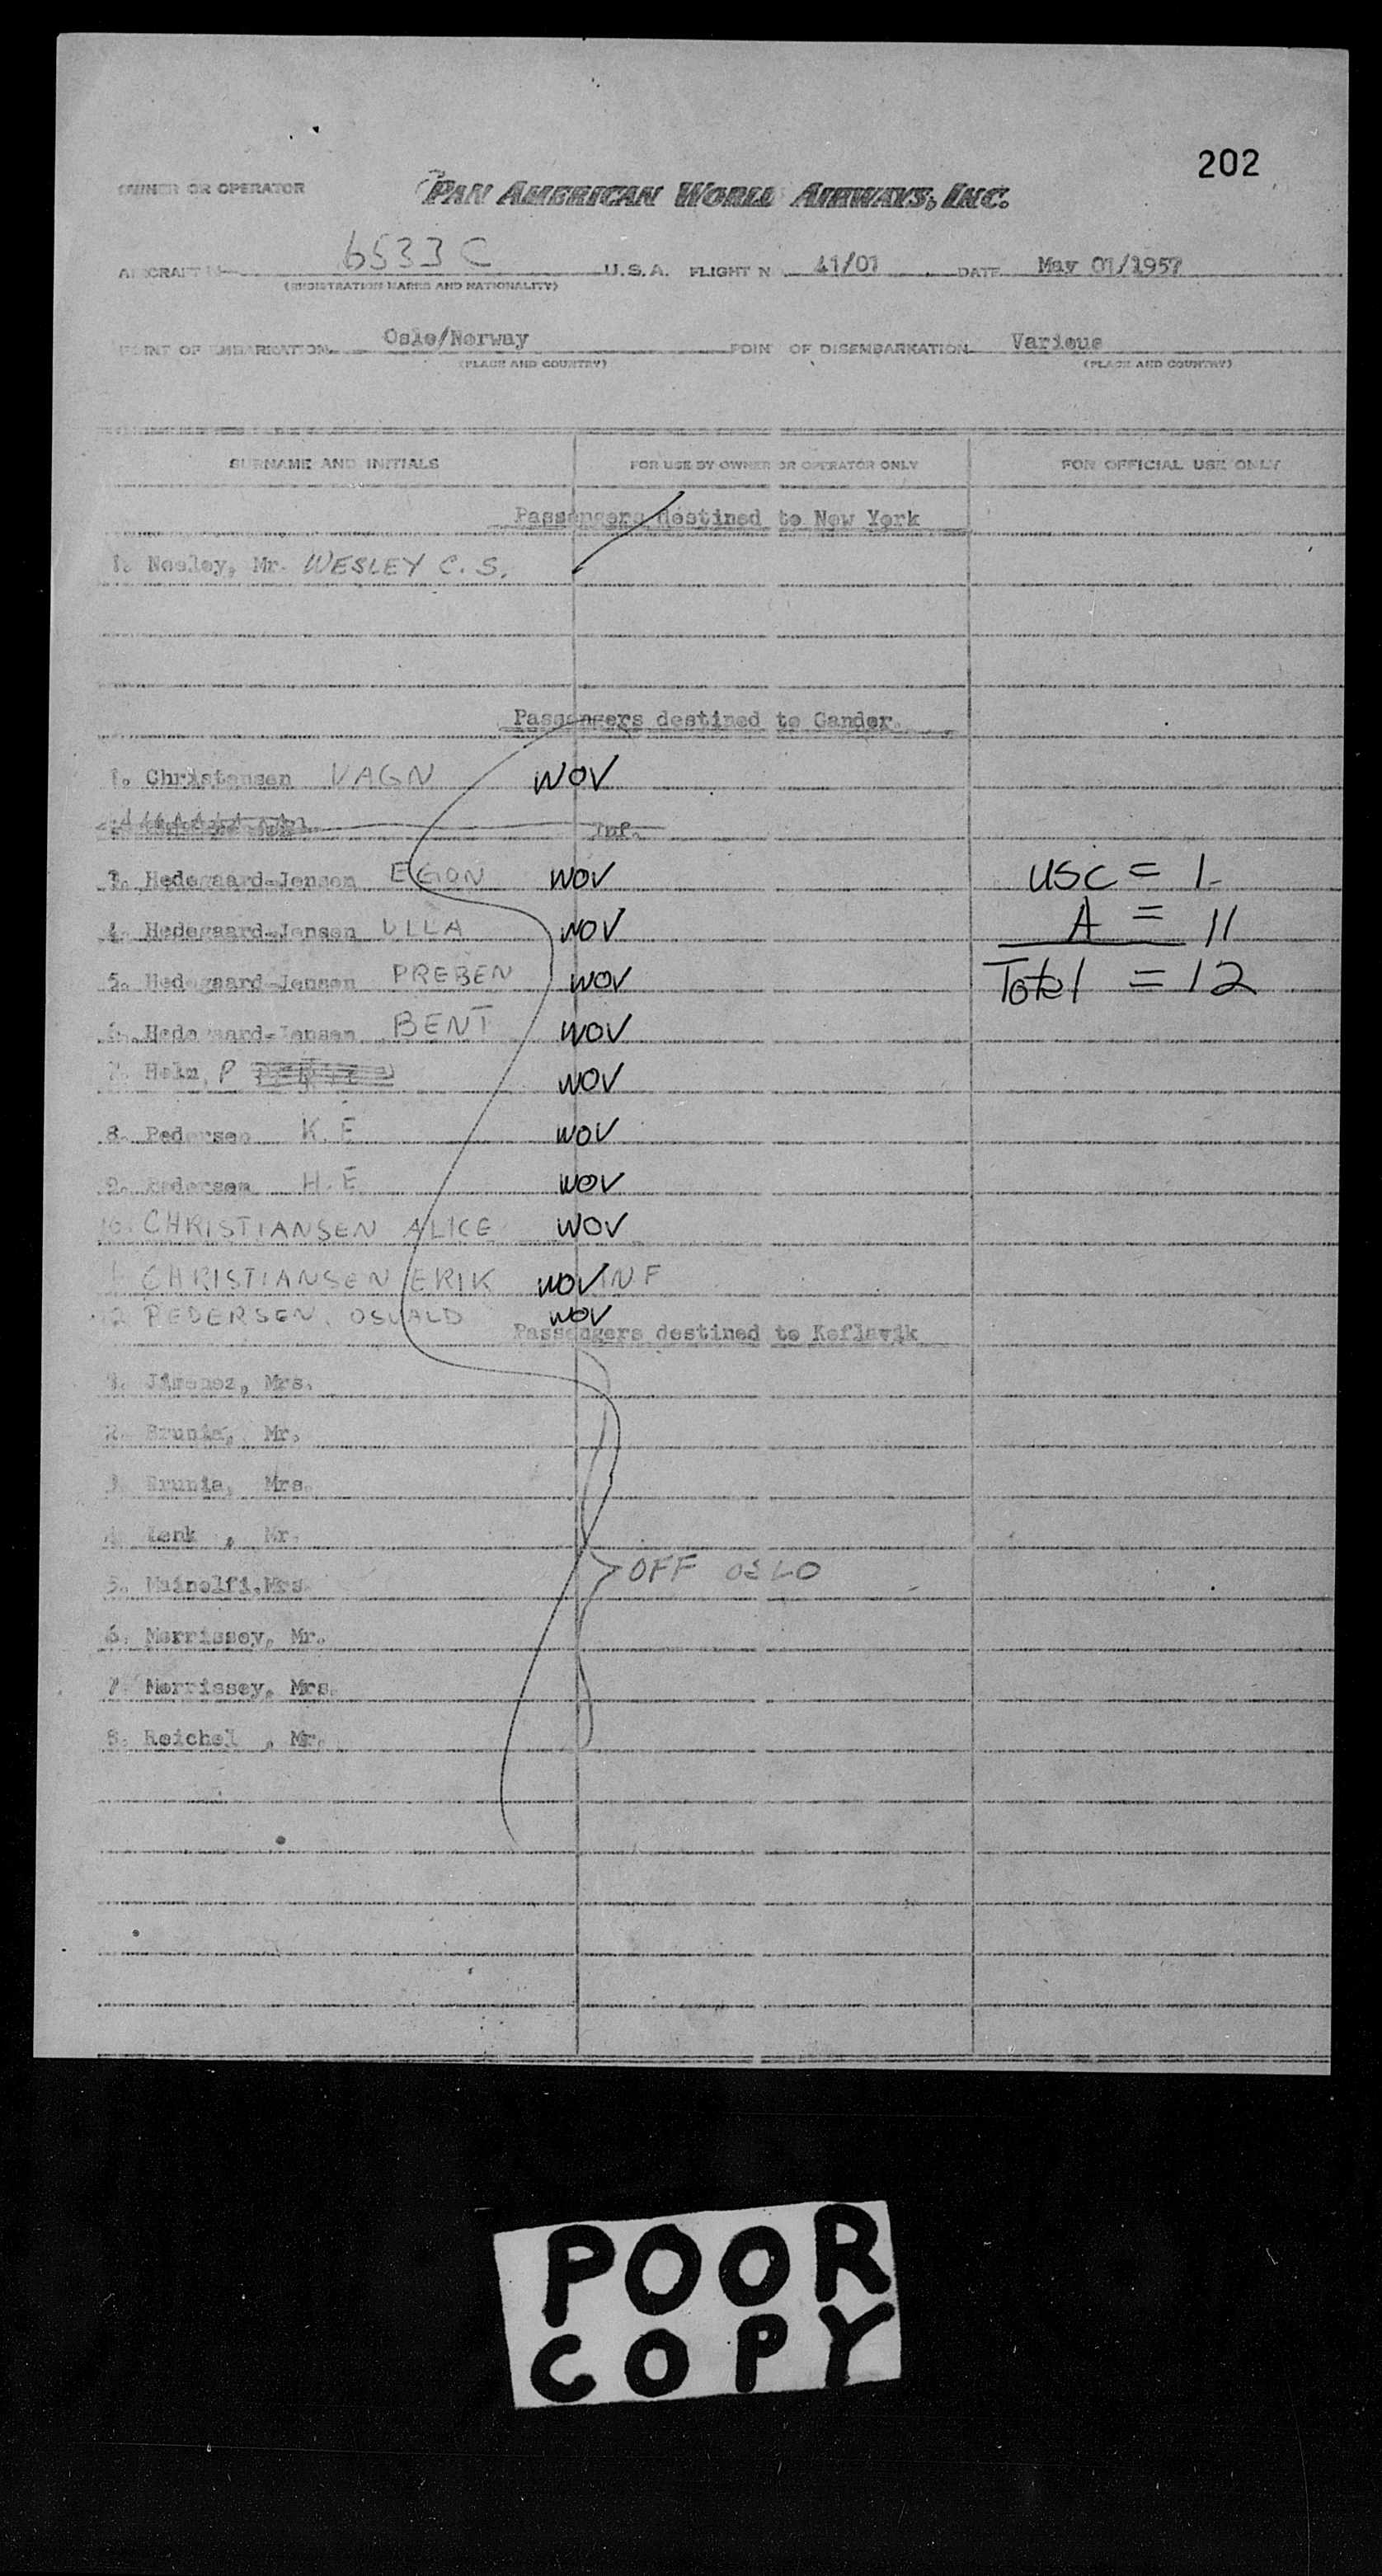 202
OWNER OR OPERATOR PAN AMERICAN WORLD AIRWAYS, INC.
AIRCRAFT N 6533 C U.S.A. FLIGHT N 41/01 DATE May 01/1957
(REGISTRATION MARKS AND NATIONALITY)
POINT OF EMBARKATION Oslo/Norway POINT OF DISEMBARKATION Various
(PLACE AND COUNTRY) (PLACE AND COUNTRY)
SURNAME AND INITIALS FOR USE BY OWNER OR OPERATOR ONLY FOR OFFICIAL USE ONLY
Passengers destined to New York
1. Neeley, Mr. WESLEY C. S.
Passengers destined to Gander.
1. Christensen VAGN WOV
Inf.
3. Hedegaard-Jensen EGON WOV USC = 1
4. Hedegaard-Jensen ULLA WOV A = 11
5. Hedegaard-Jensen PREBEN WOV Total = 12
6. Hedegaard-Jensen BENT WOV
7. Holm, P WOV
8. Pedersen K. E WOV
9. Pedersen H. E WOV
10. CHRISTIANSEN ALICE WOV
11 CHRISTIANSEN ERIK WOV INF
12 PEDERSEN, OSVALD WOV
Passengers destined to Keflavik
1. Jimenez, Mrs.
2. Brunia, Mr.
3. Brunia, Mrs.
4. Mr.
OFF OSLO
5. Mainolfi, Mrs.
6. Morrissey, Mr.
7. Morrissey, Mrs.
8. Reichel , Mr.
POOR
COPY